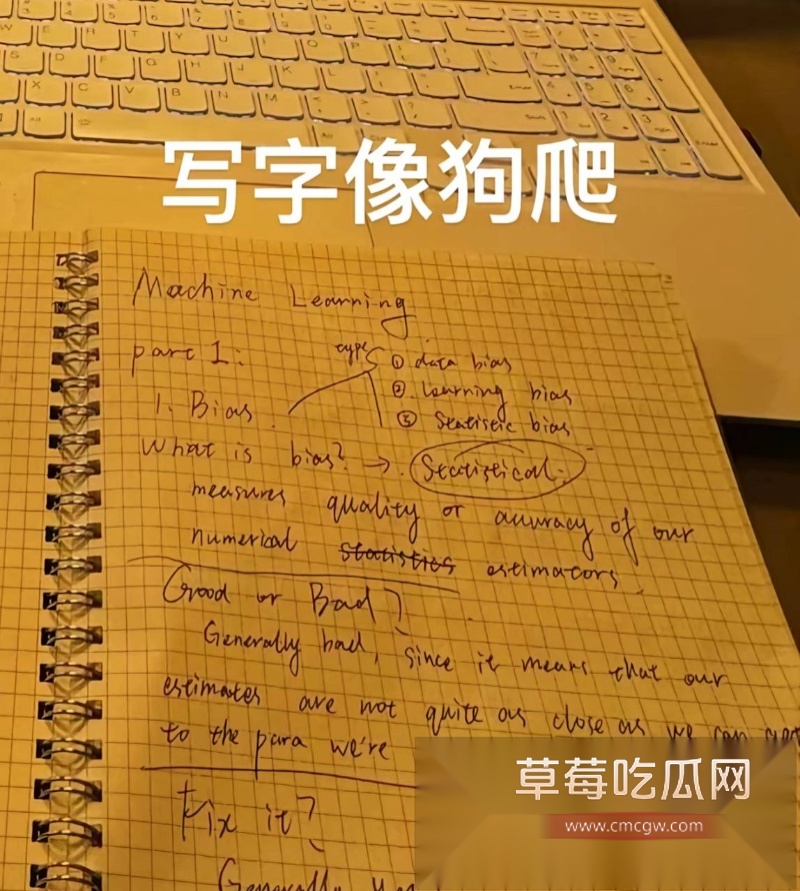 写字像狗爬
Machine Learning
part 1:
types
① data bias
② learning bias
③ Statistic bias
1. Bias
What is bias? → Statistical:
measures quality or accuracy of our
numerical Statistics estimators.
Good or Bad?
Generally bad, since it means that our
estimates are not quite as close as we can get
to the para we're
Fix it?
Generally
草莓吃瓜网
www.cmcgw.com